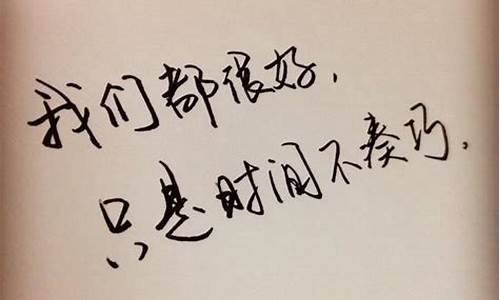 我们都很好,
只是时间不凑巧.